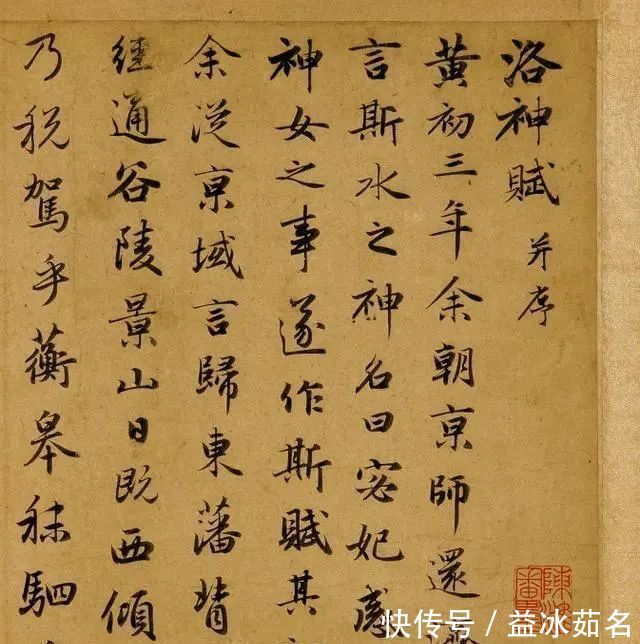 洛神賦 并序
黄初三年余朝京師還
言斯水之神名曰宓妃感
神女之事遂作斯賦其
余從京域言歸東藩背
經通谷陵景山日既西傾
乃税駕乎蘅皋秣駟
快传号 / 益冰茹名